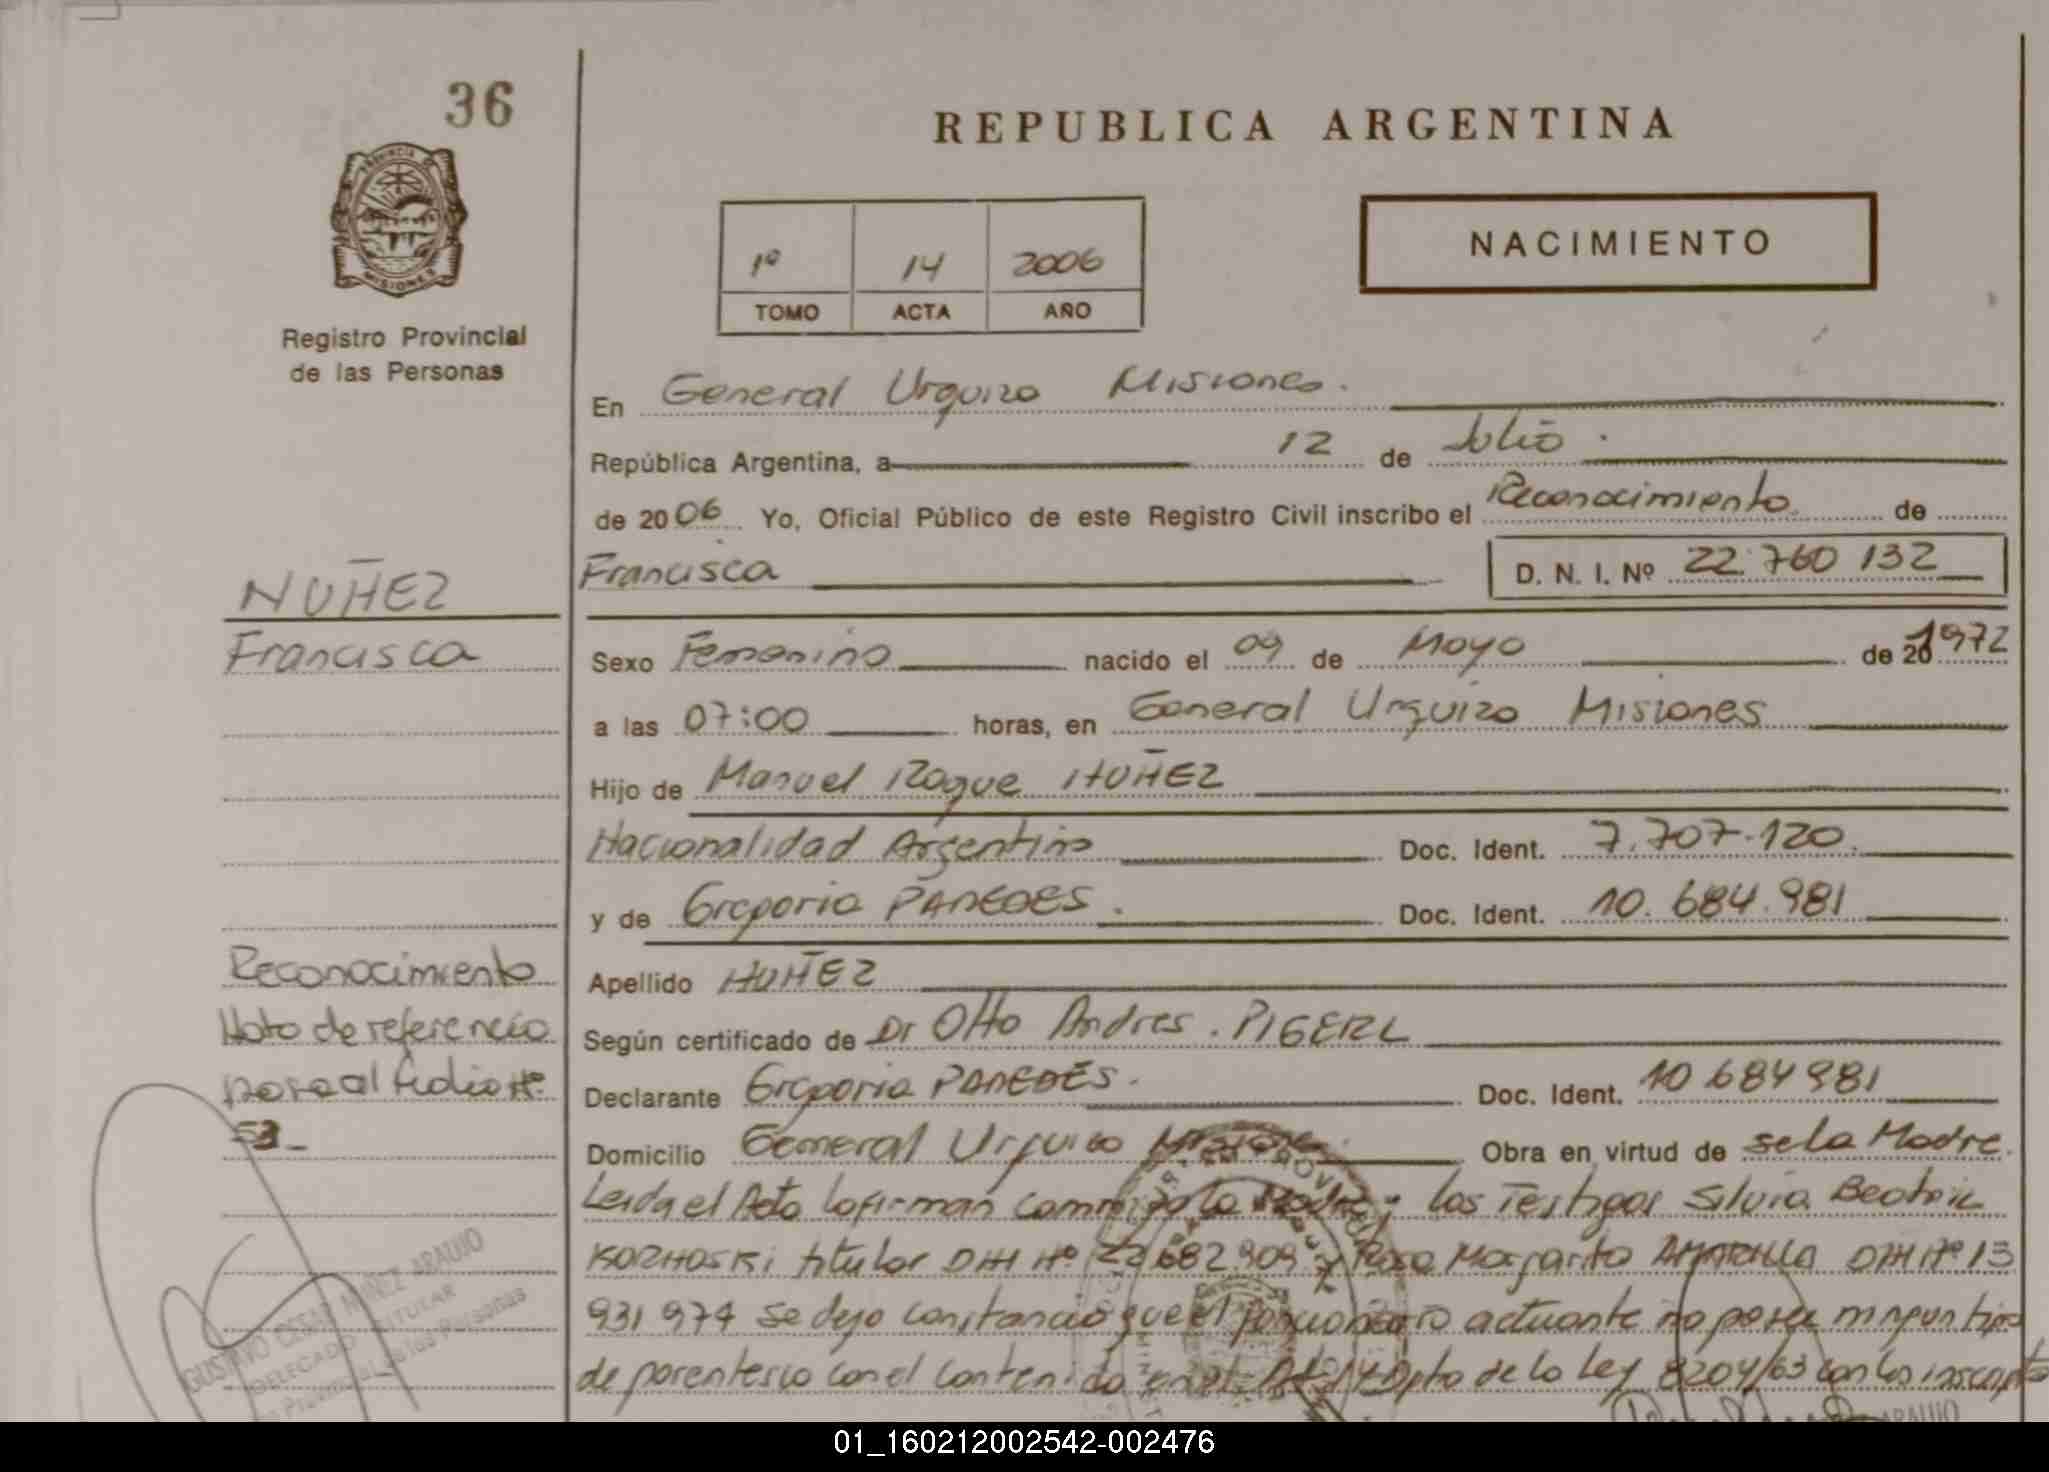 36
REPUBLICA ARGENTINA
PROVINCIA DE
MISIONES
Registro Provincial
de las Personas
1º 14 2006
TOMO ACTA AÑO
NACIMIENTO
En General Urquiza Misiones.
República Argentina, a 12 de Julio.
de 2006 Yo, Oficial Público de este Registro Civil inscribo el Reconocimiento de
Francisca D. N. I. Nº 22.760 132
NUÑEZ
Francisca
Sexo Femenino nacido el 09 de Mayo de 20 1972
a las 07:00 horas, en General Urquiza Misiones
Hijo de Manuel Roque NUÑEZ
Nacionalidad Argentino Doc. Ident. 7.707.120.
y de Gregoria PAREDES. Doc. Ident. 10.684.981
Reconocimiento
Nota de referencia
pasa al Folio Nº
53
Apellido NUÑEZ
Según certificado de Dr Otto Andres. PIGERL
Declarante Gregoria PAREDES. Doc. Ident. 10 684 981
Domicilio General Urquiza Misiones. Obra en virtud de se la Madre.
Leida el Acta la firman conmigo la Madre y los Testigos Silvia Beatriz
KOZNOSKi titular DNI Nº 22 682 909 y Rosa Margarita AMARILLA DNI Nº 13
931 974 se dejo constancia que el funcionario actuante no posee ningun tipo
de parentesco con el contenido en el Art. 14 Dpto de la Ley 8204/63 con los inscripto
GUSTAVO CESAR NUÑEZ ARAUJO
DELEGADO TITULAR
Provincial de las Personas
ARAUJO
01_160212002542-002476